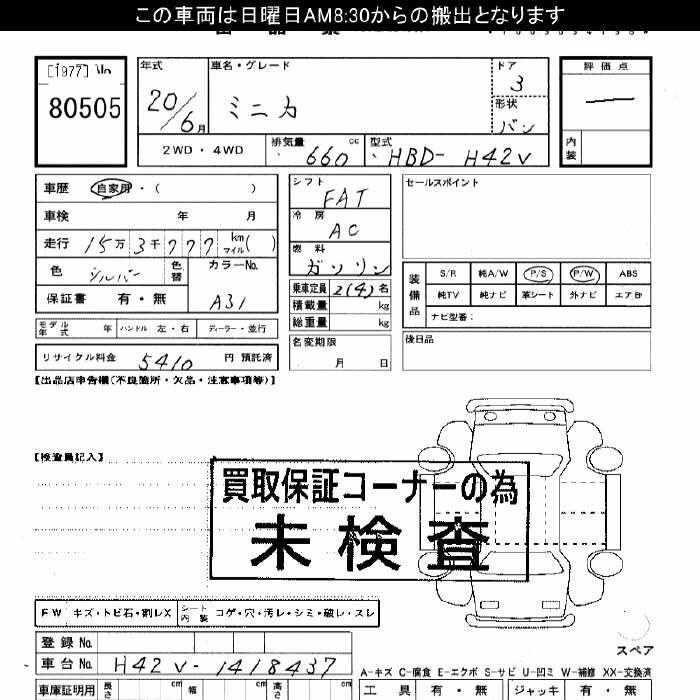 この車両は日曜日AM8:30からの搬出となります
[1977] No
80505
年式 20/6月
車名・グレード ミニカ
ドア 3
形状 バン
評価点
内装
2WD・4WD
排気量 660 cc
型式 HBD- H42V
車歴 自家用・( )
車検 年 月
走行 15万3千777 km マイル ( )
色 シルバー 色替
カラーNo. A31
保証書 有・無
モデル年式 年 ハンドル 左・右 ディーラー・並行
リサイクル料金 5410 円 預託済
シフト FAT
冷房 AC
燃料 ガソリン
乗車定員 2(4) 名
積載量 kg
総重量 kg
名変期限 月 日
セールスポイント
装備品
S/R 純A/W P/S P/W ABS
純TV 純ナビ 革シート 外ナビ エアB
ナビ型番:
後日品
【出品店申告欄(不良箇所・欠品・注意事項等)】
【検査員記入】
買取保証コーナーの為
未検査
FW キズ・トビ石・割レX
シート内装 コゲ・穴・汚レ・シミ・破レ・スレ
登録No.
車台No. H42V-1418437
車庫証明用 長さ cm 幅 cm 高さ cm
スペア
A-キズ C-腐食 E-エクボ S-サビ U-凹ミ W-補修 XX-交換済
工具 有・無 ジャッキ 有・無